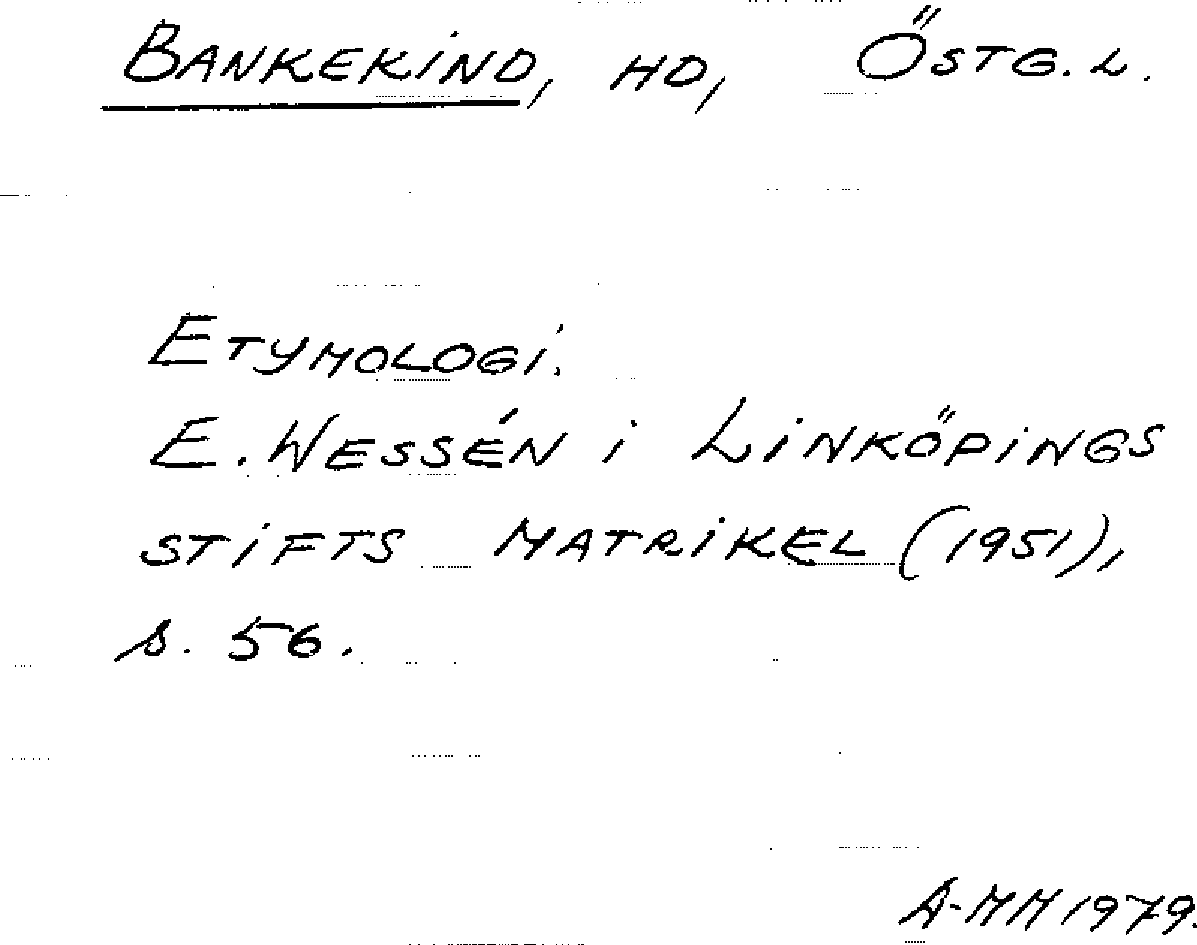 BANKEKIND, HD, ÖSTG. L.
ETYMOLOGI.
E. WESSÉN i LINKÖPINGS
STIFTS MATRIKEL (1951),
s. 56.
A-MM 1979.